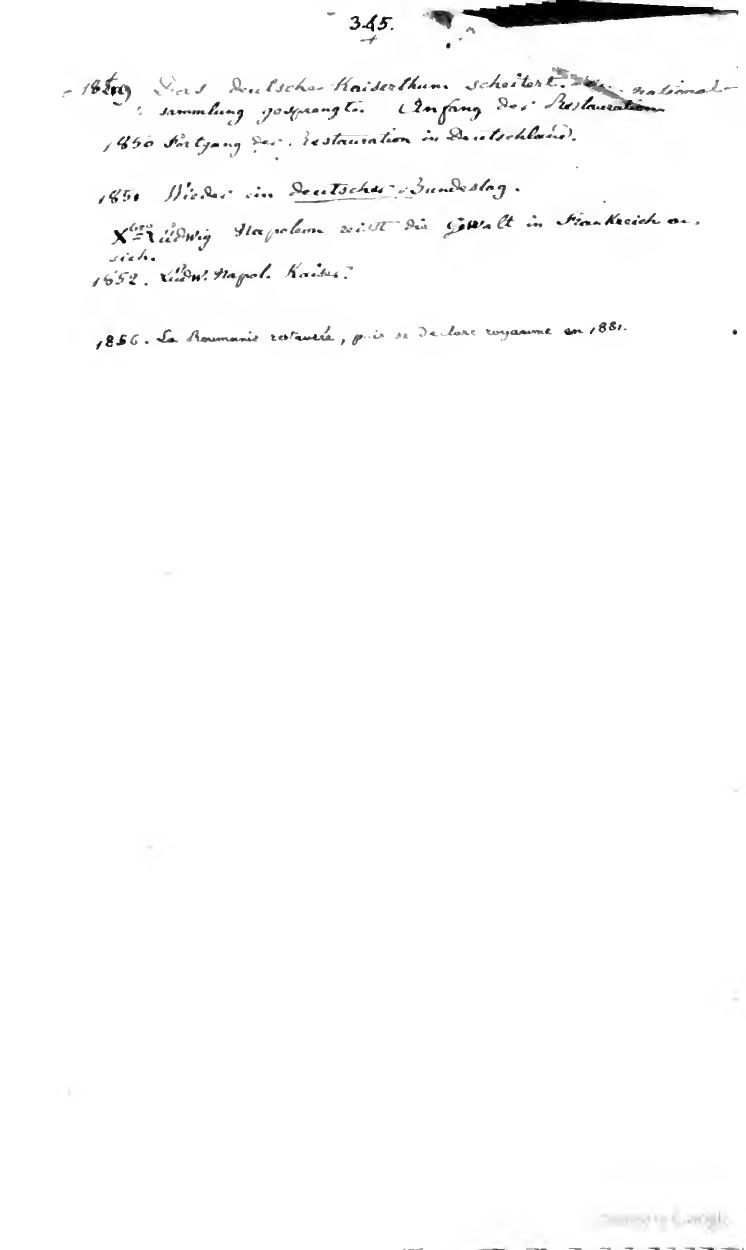 345.
1849 Das deutsche Kaiserthum scheitert. Die National-
sammlung gesprengt. (Anfang der Restauration
1850 Fortgang der Restauration in Deutschland).
1851 Wieder ein Deutscher Bundestag.
Xbre Ludwig Napoleon reißt die Gewalt in Frankreich an
sich.
1852. Ludw. Napol. Kaiser.
1856. La Roumanie restaurée, puis se declare royaume en 1881.